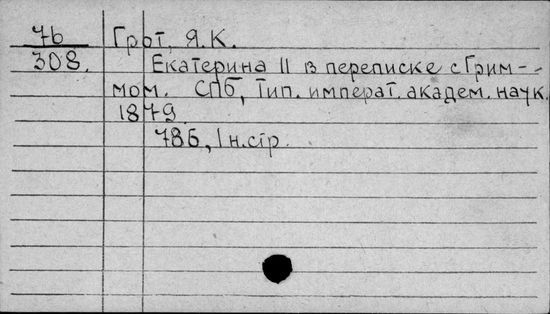 76 Грот, Я.К.
308. Екатерина II в переписке с Грим-
мом. СПб, Тип. императ. академ. наук.
1879.
786, 1 н.стр.